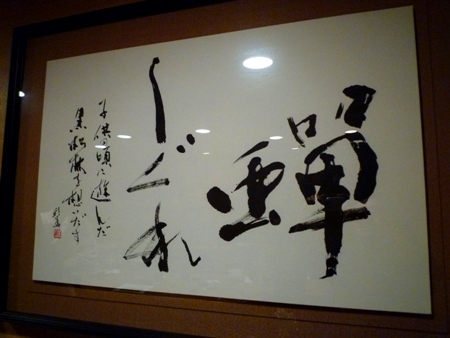 蟬
しぐれ
子供の頃に遊んだ
黒松林を想いだす